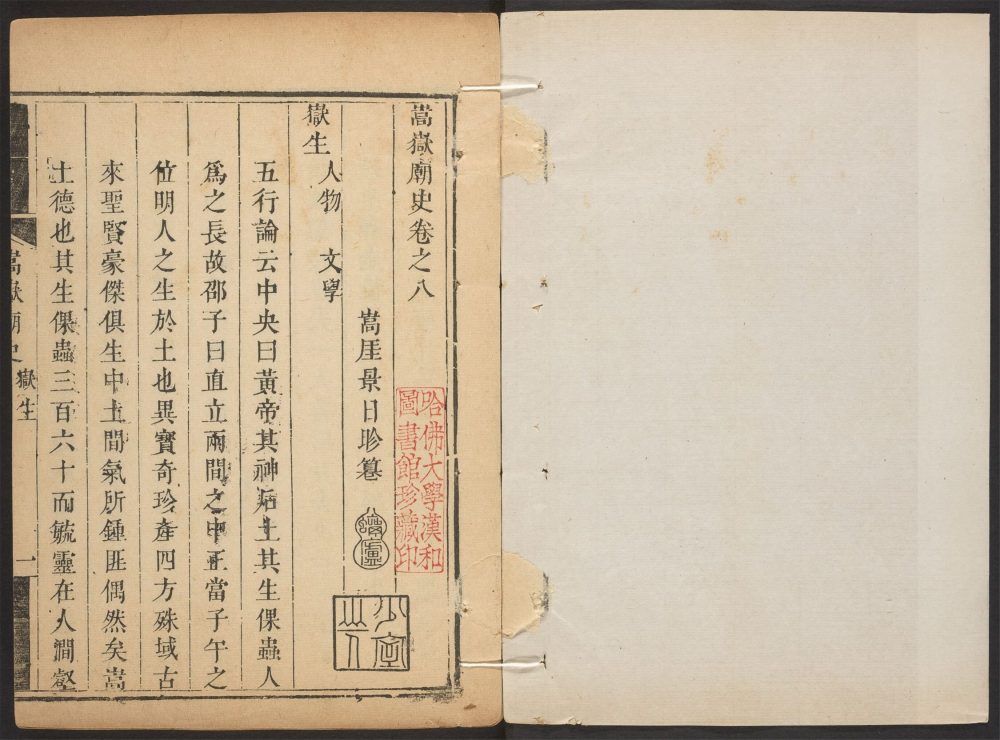 嵩嶽廟史卷之八
哈佛大學漢和
圖書館珍藏印
嵩厓景日昣纂
少室
山人
嶽生 人物 文學
五行論云中央曰黃帝其神后土其生倮蟲人
爲之長故邵子曰直立兩間之中正當子午之
位明人之生於土也異寶奇珍產四方殊域古
來聖賢豪傑俱生中土間氣所鍾匪偶然矣嵩
土德也其生倮蟲三百六十而毓靈在人澗壑
嵩嶽廟史 嶽生 一